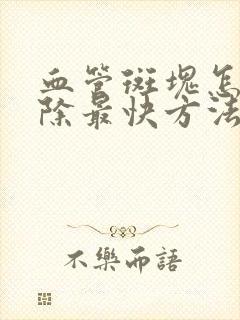 血管斑塊怎
除最快方法
不樂而語